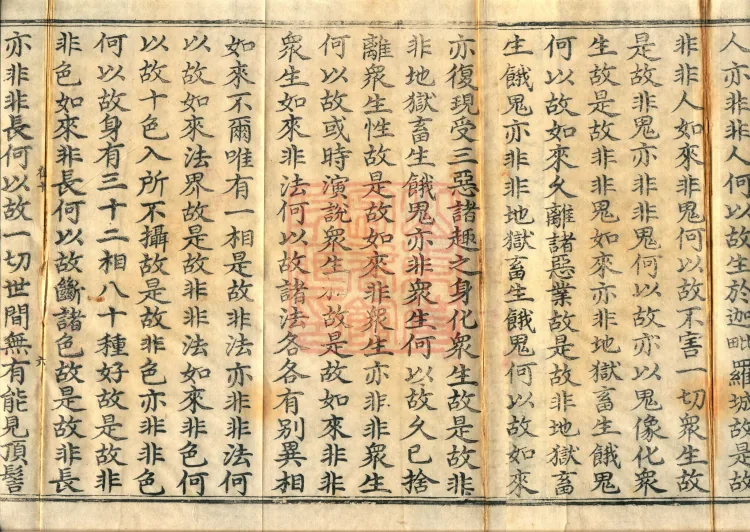 人亦非非人何以故生於迦毗羅城故是故
非非人如來非鬼何以故不害一切衆生故
是故非鬼亦非非鬼何以故亦以鬼像化衆
生故是故非非鬼如來亦非地獄畜生餓鬼
何以故如來久離諸惡業故是故非地獄畜
生餓鬼亦非非地獄畜生餓鬼何以故如來
亦復現受三惡諸趣之身化衆生故是故非
非地獄畜生餓鬼亦非衆生何以故久已捨
離衆生性故是故如來非衆生亦非非衆生
何以故或時演說衆生相故是故如來非非
衆生如來非法何以故諸法各各有別異相
如來不爾唯有一相是故非法亦非非法何
以故如來法界故是故非非法如來非色何
以故十色入所不攝故是故非色亦非非色
何以故身有三十二相八十種好故是故非
非色如來非長何以故斷諸色故是故非長
亦非非長何以故一切世間無有能見頂髻